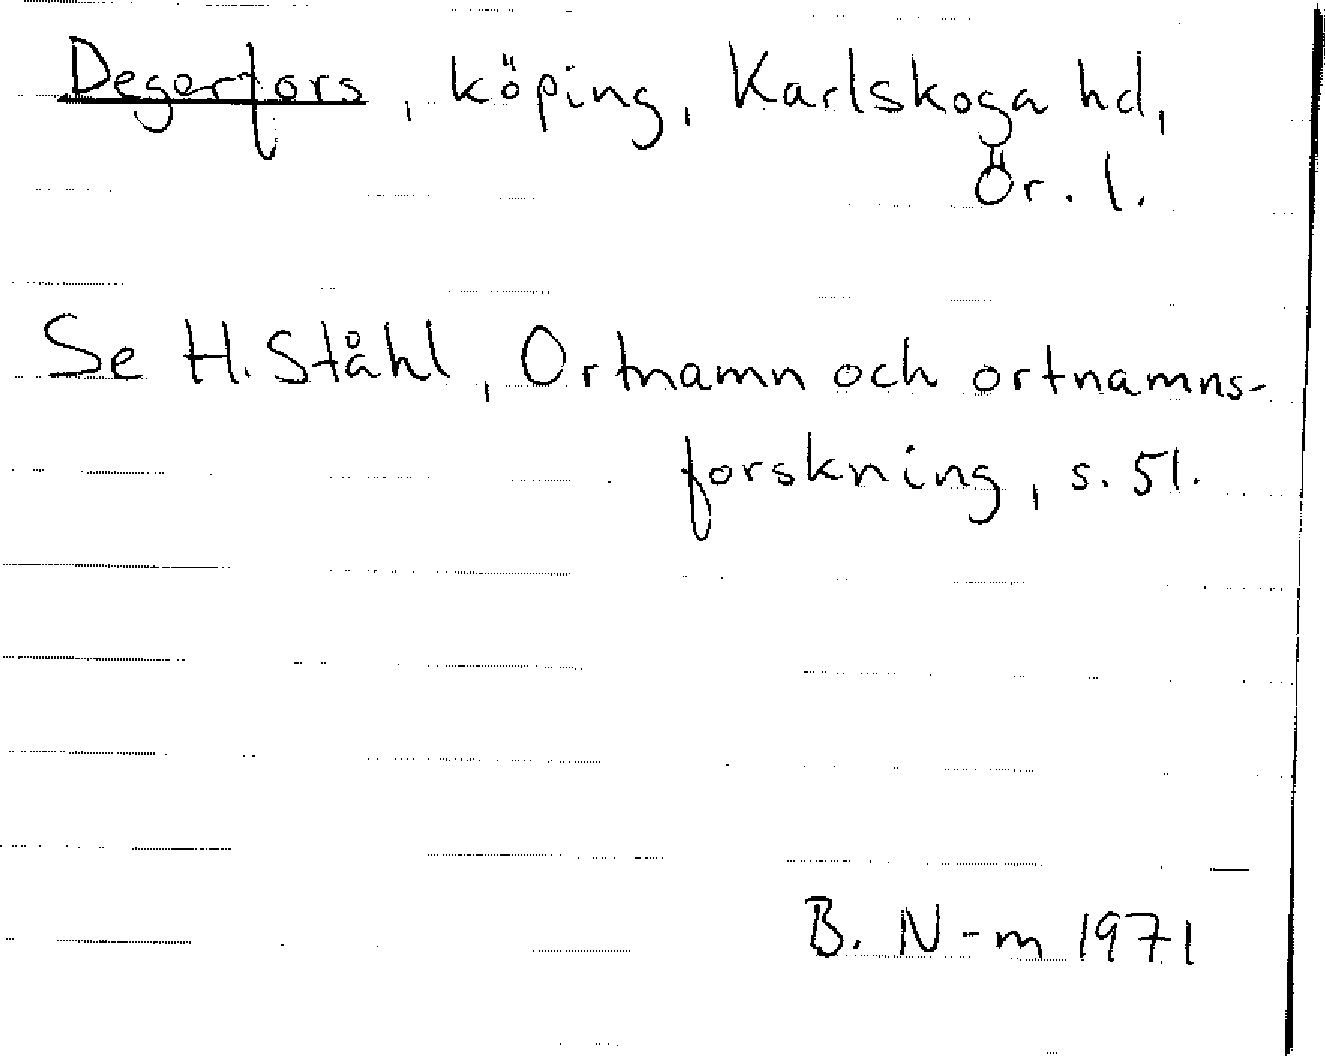 Degerfors, köping, Karlskoga hd,
Ör. l.
Se H. Ståhl, Ortnamn och ortnamns-
forskning, s. 51.
B. N-m 1971